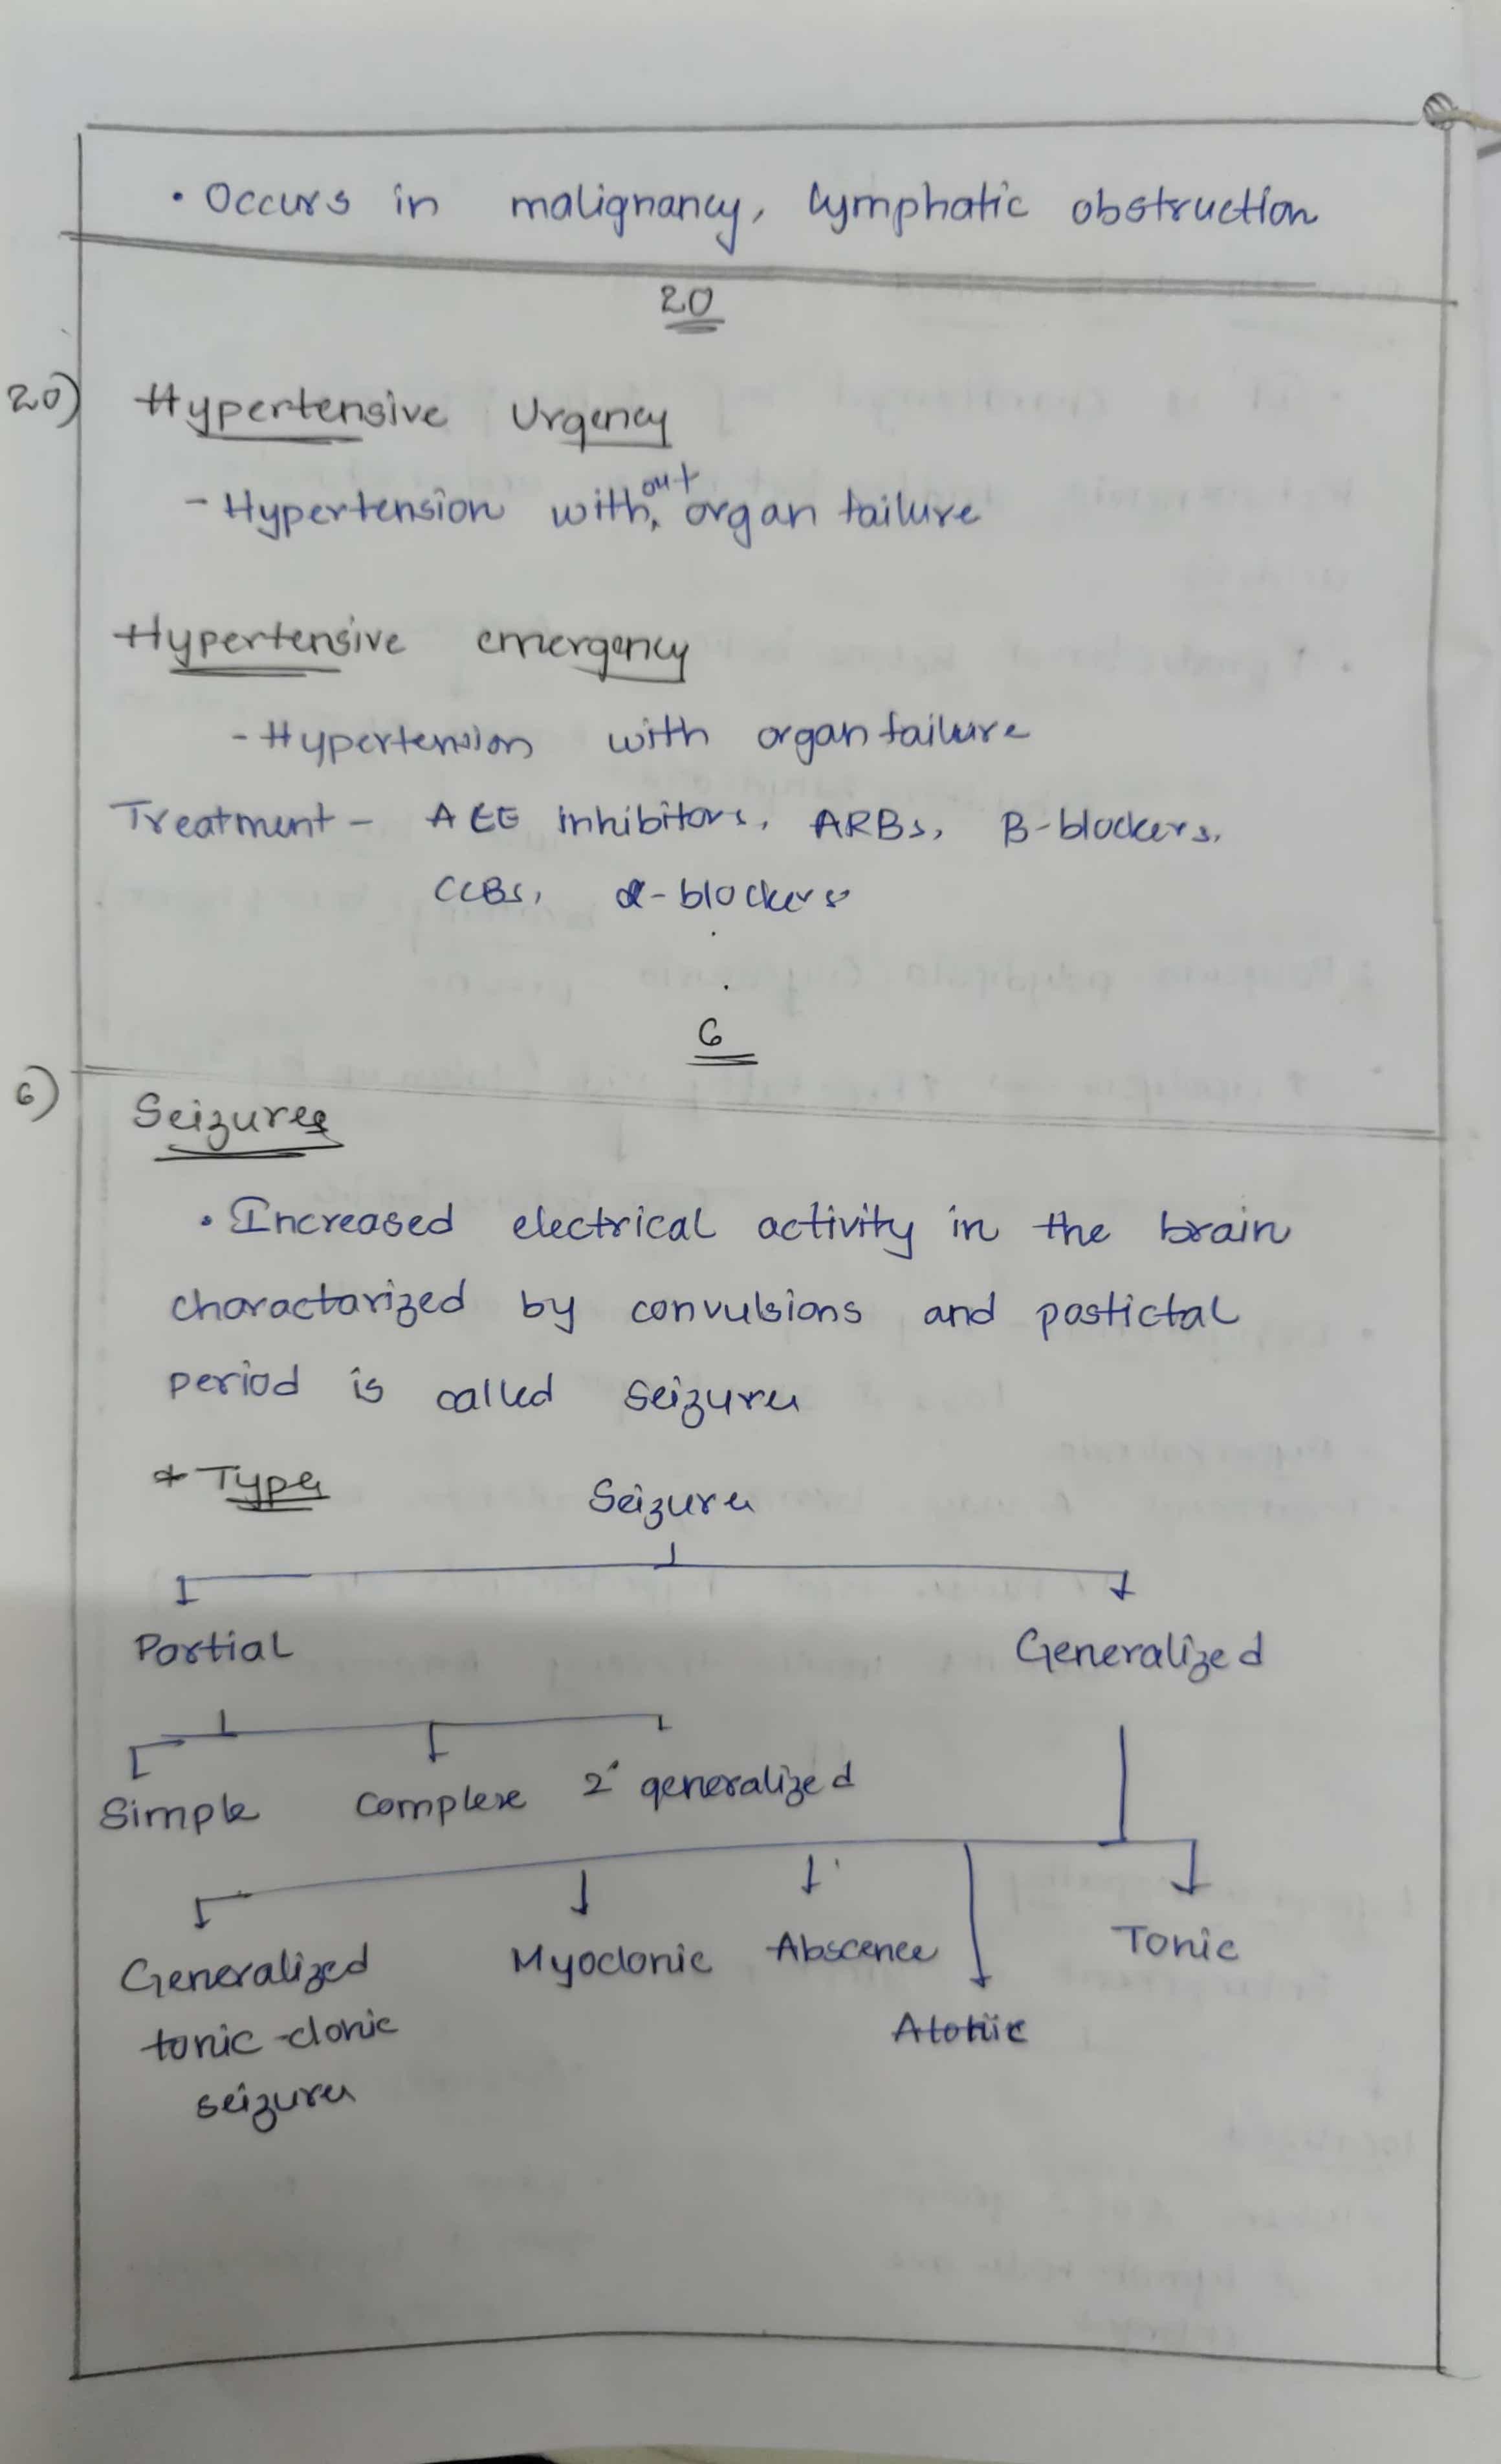 • Occurs in malignancy, lymphatic obstruction
20
20) Hypertensive Urgency
- Hypertension without organ failure
Hypertensive emergency
- Hypertension with organ failure
Treatment - ACE inhibitors, ARBs, B-blockers,
CCBs, α-blockers
6
6) Seizures
• Increased electrical activity in the brain
charactarized by convulsions and postictal
period is called seizures
* Types
Seizures
Partial Generalized
Simple Complex 2° generalized
Generalized Myoclonic Abscence Tonic
tonic-clonic Atonic
seizures